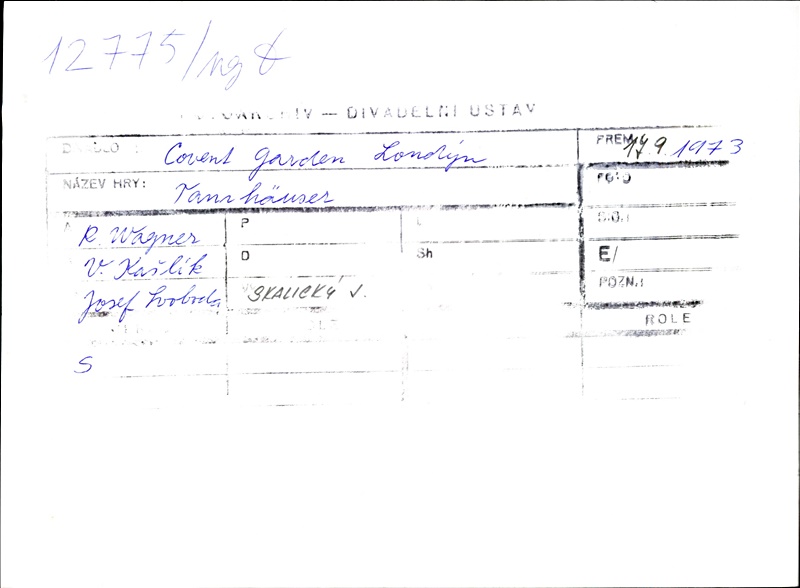 12775/ng
— DIVADELNÍ ÚSTAV
Covent Garden Londýn
PREM. 17 9. 1973
NÁZEV HRY: Tannhäuser
FOTO
A R. Wagner P
V. Kašlík D Sh E/
Josef Svoboda SKALICKÝ J. POZN.:
ROLE
S